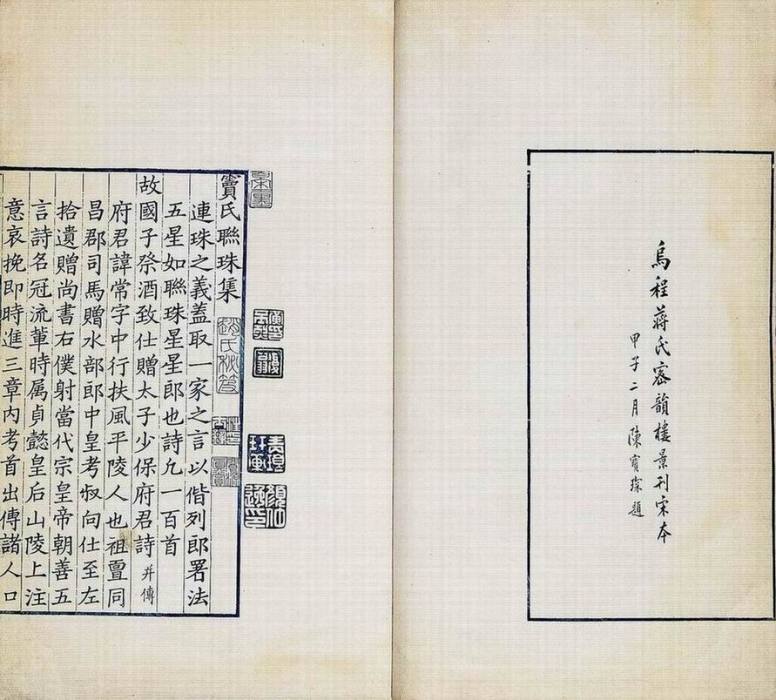 烏程蔣氏密韻樓景刊宋本
甲子二月陳寶琛題
竇氏聯珠集
連珠之義蓋取一家之言以偕列郎署法
五星如聯珠星星郎也詩凢一百首
故國子祭酒致仕贈太子少保府君詩并傳
府君諱常字中行扶風平陵人也祖亶同
昌郡司馬贈水部郎中皇考叔向仕至左
拾遺贈尚書右僕射當代宗皇帝朝善五
言詩名冠流輩時属貞懿皇后山陵上注
意哀挽即時進三章内考首出傳諸人口